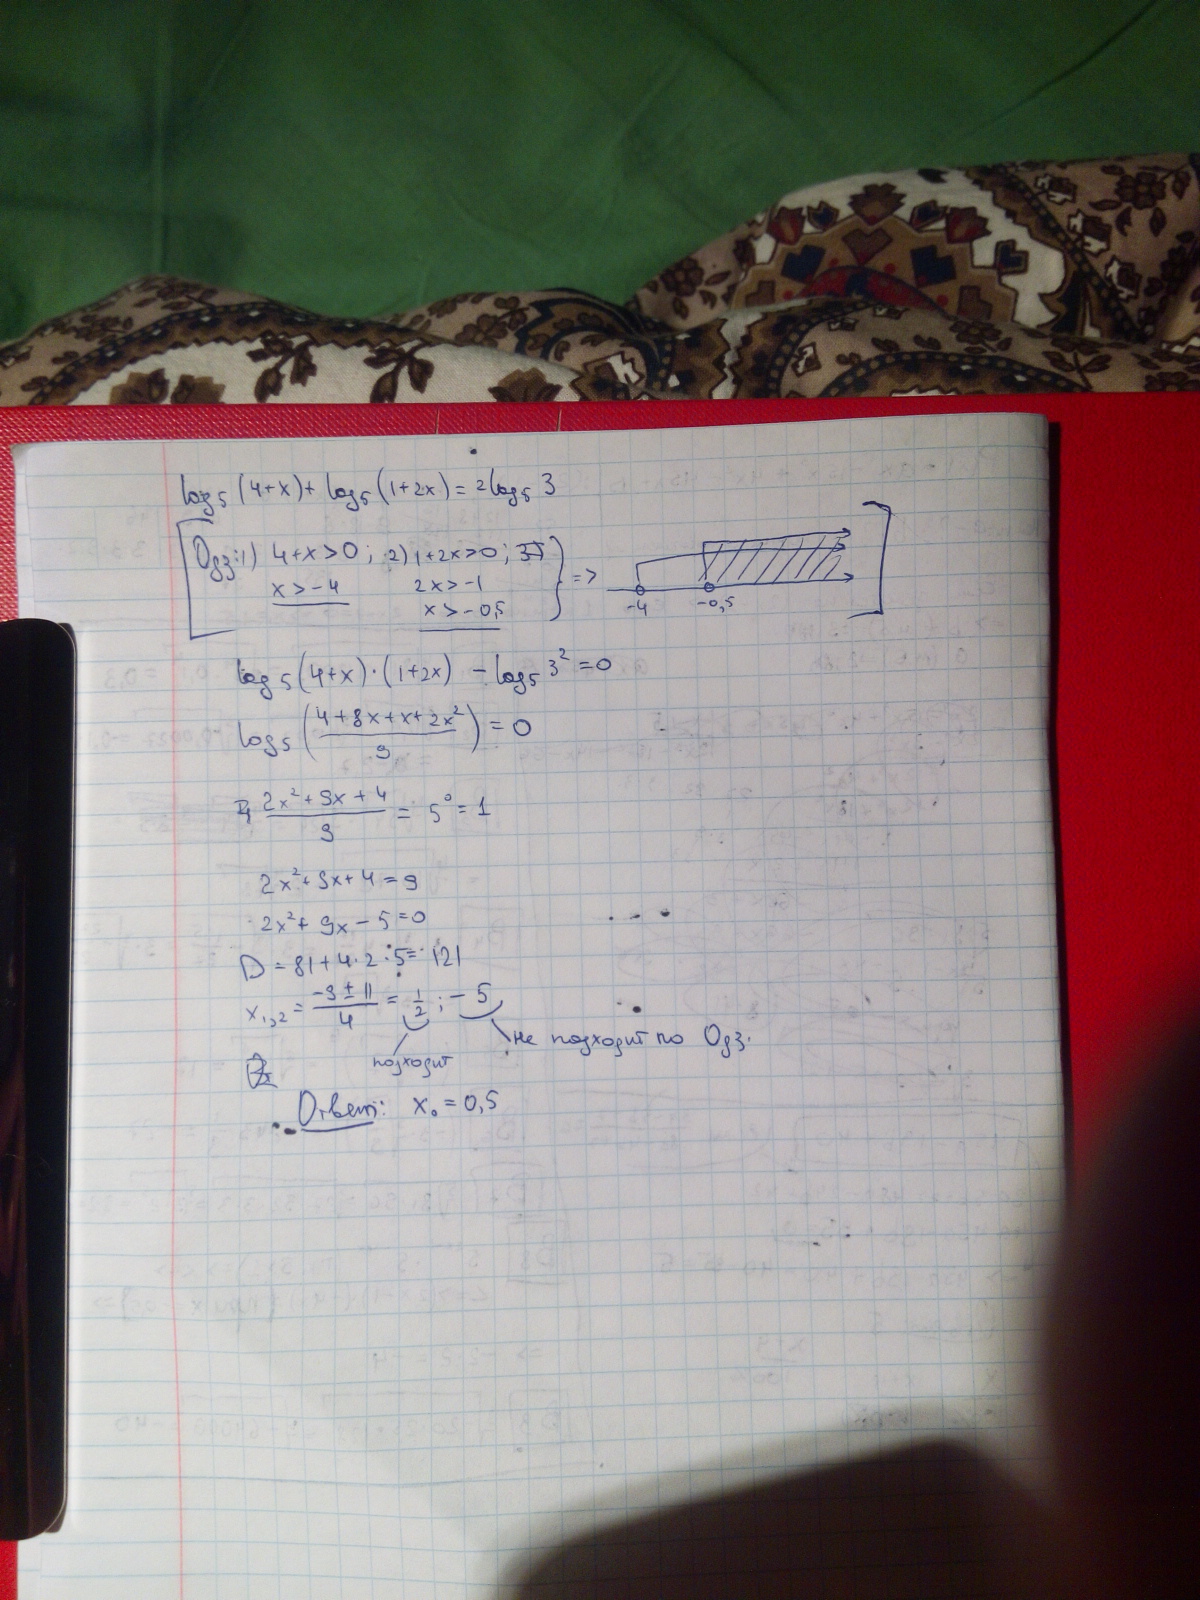 log₅(4+x)+log₅(1+2x)=2log₅3
Одз:1) 4+x>0; 2) 1+2x>0; =>
x>-4 2x>-1
x>-0,5
-4 -0,5
log₅(4+x)·(1+2x) - log₅3²=0
log₅((4+8x+x+2x²)/9)=0
(2x²+9x+4)/9 = 5⁰=1
2x²+9x+4=9
2x²+9x-5=0
D=81+4·2·5=121
x₁,₂=(-9±11)/4=1/2; -5
подходит не подходит по Одз.
Ответ: x₀=0,5